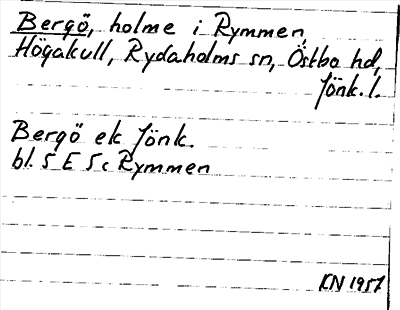 Bergö, holme i Rymmen,
Högakull, Rydaholms sn, Östbo hd,
Jönk. l.
Bergö ek Jönk.
bl. 5 E 5 c Rymmen
KN 1957